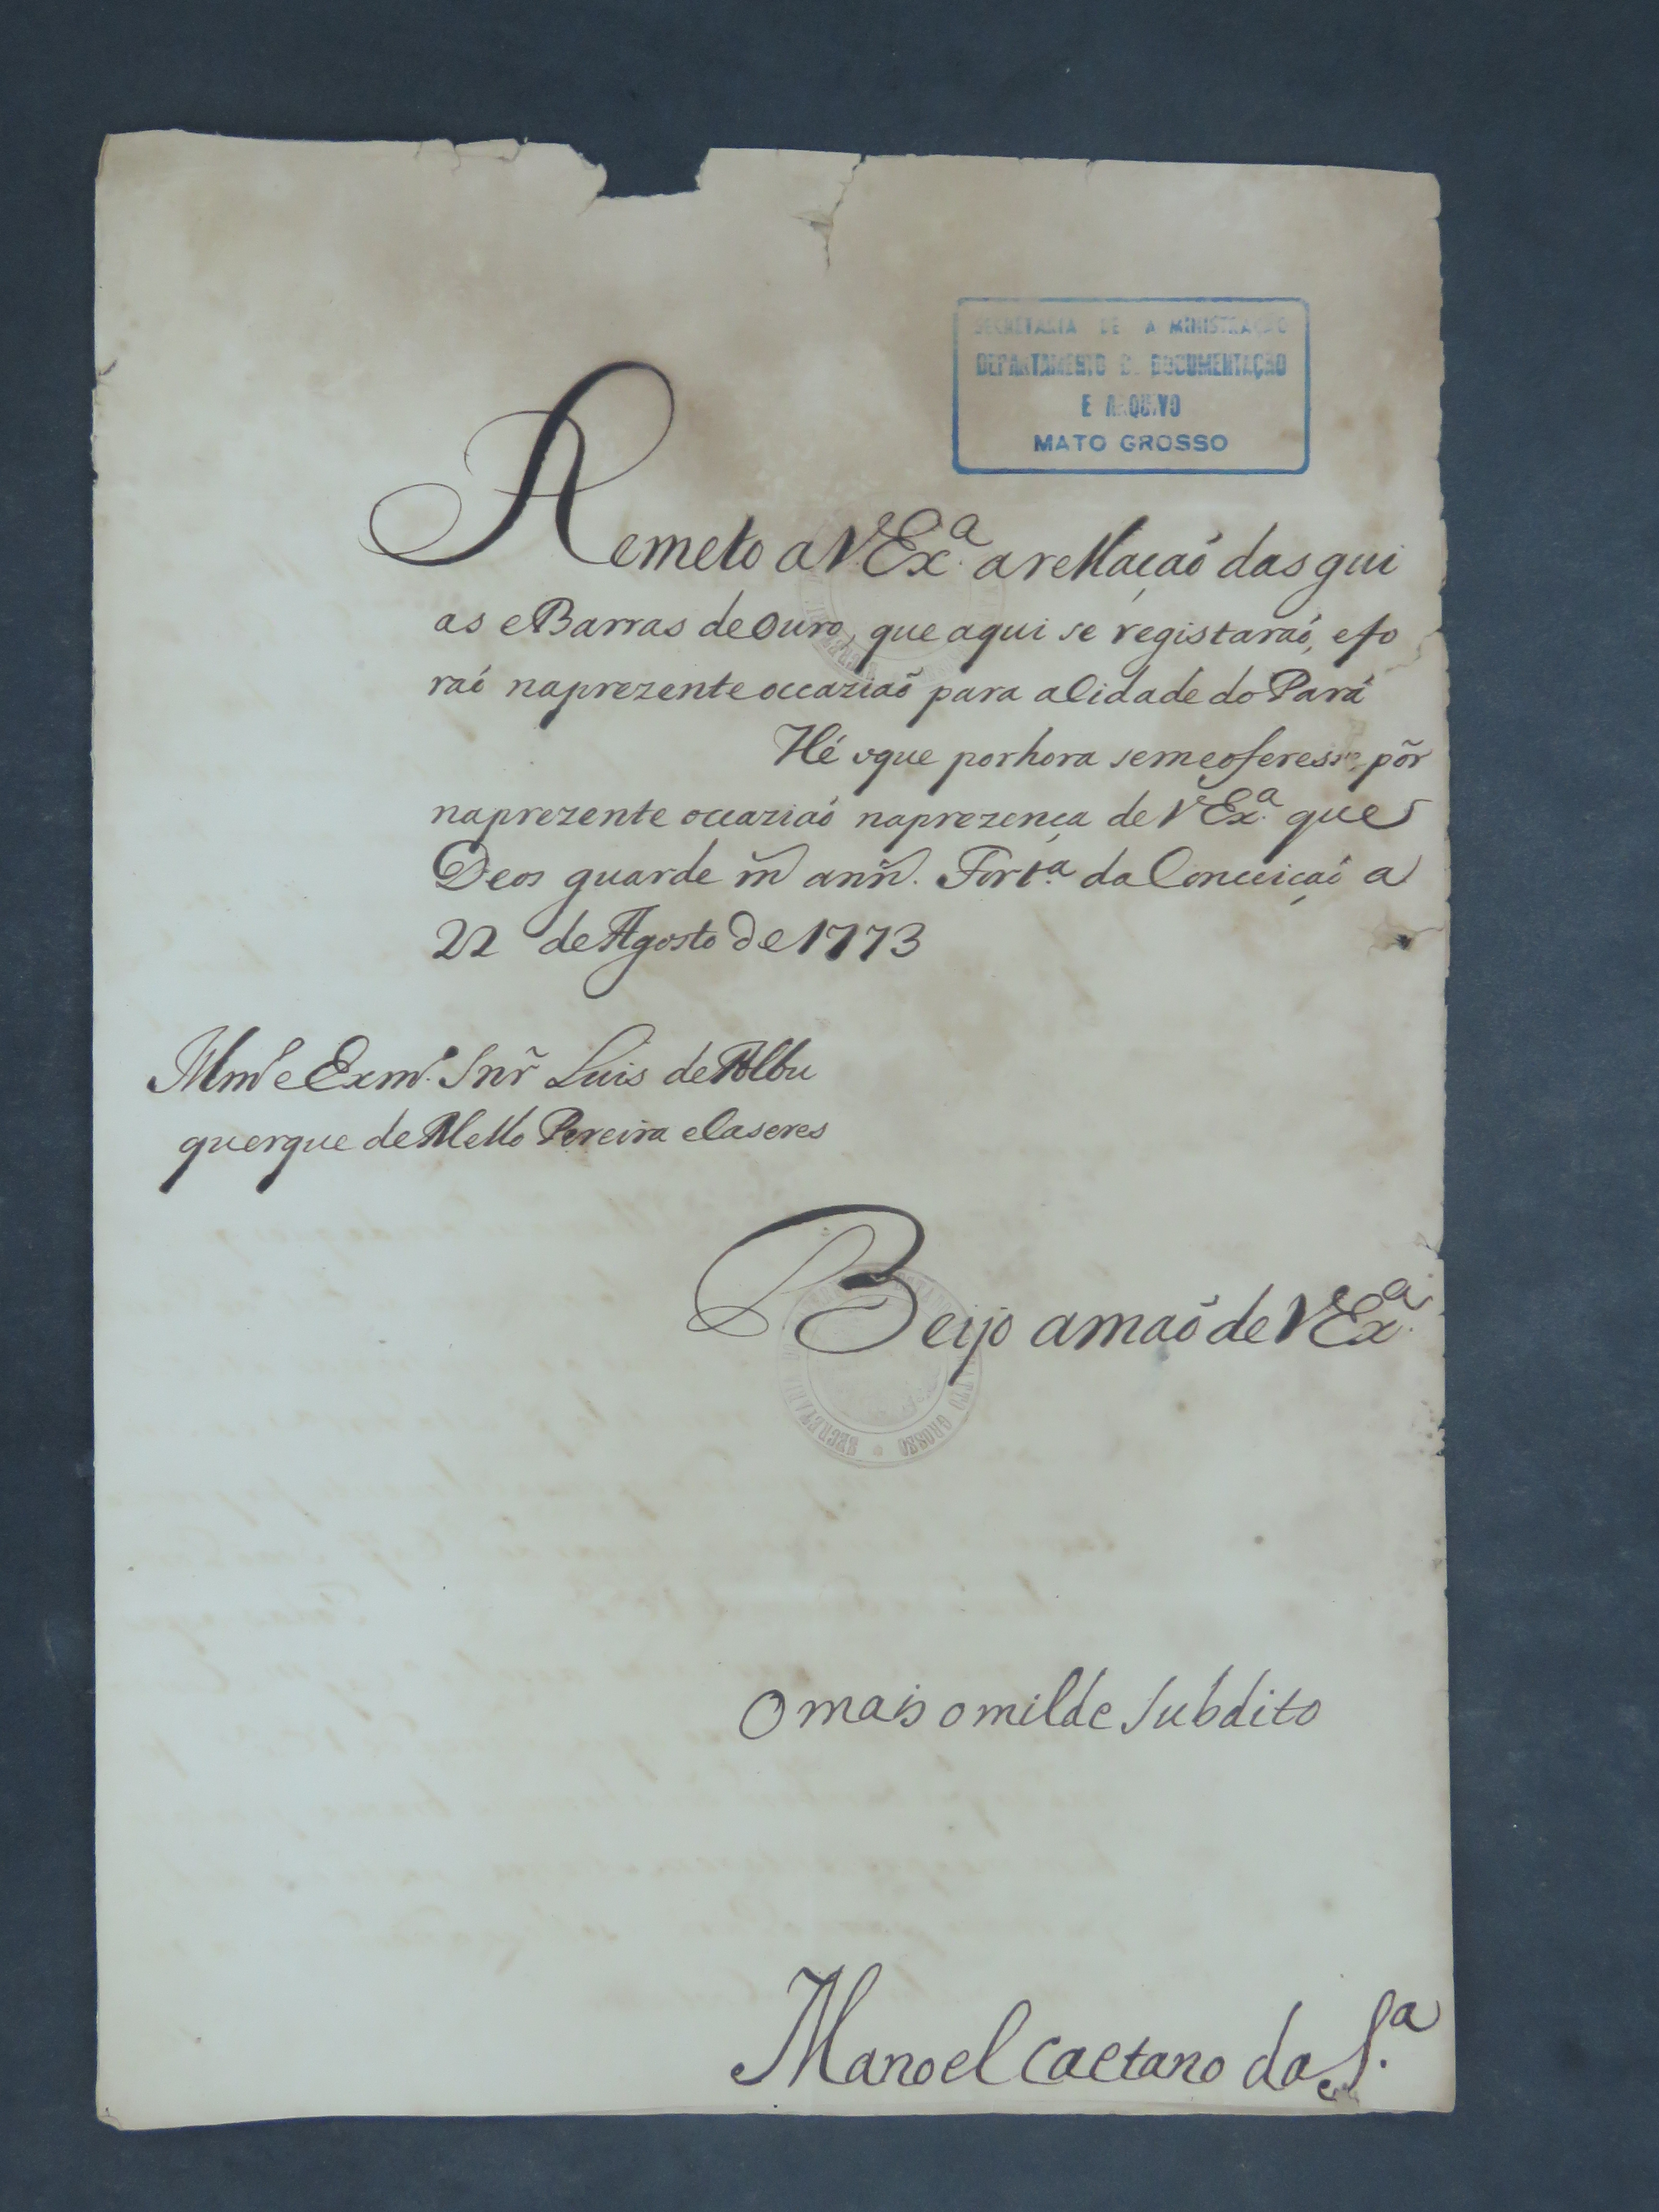 SECRETARIA DE A MINISTRAÇÃO
DEPARTAMENTO DE DOCUMENTAÇÃO
E ARQUIVO
MATO GROSSO
Remeto aVExª. arellaçaó dasgui
as eBarras deOuro, que aqui se registaraó, efo
raó naprezente occaziaõ para aCidade do Pará
Hé oque porhora semeoferesse põr
naprezente occaziaó naprezença de VExª. que
Deos guarde m̃ ann̄. Fortª. da Conceiçaó a
22 de Agosto de 1773
Illmº e Exmº. Snr̃ Luis deAlbu
querque deMello Pereira eCaseres
Beijo amaõ de VExª.
O mais omilde Subdito
Manoel Caetano da S.ª
SECRETARIA
MATO GROSSO